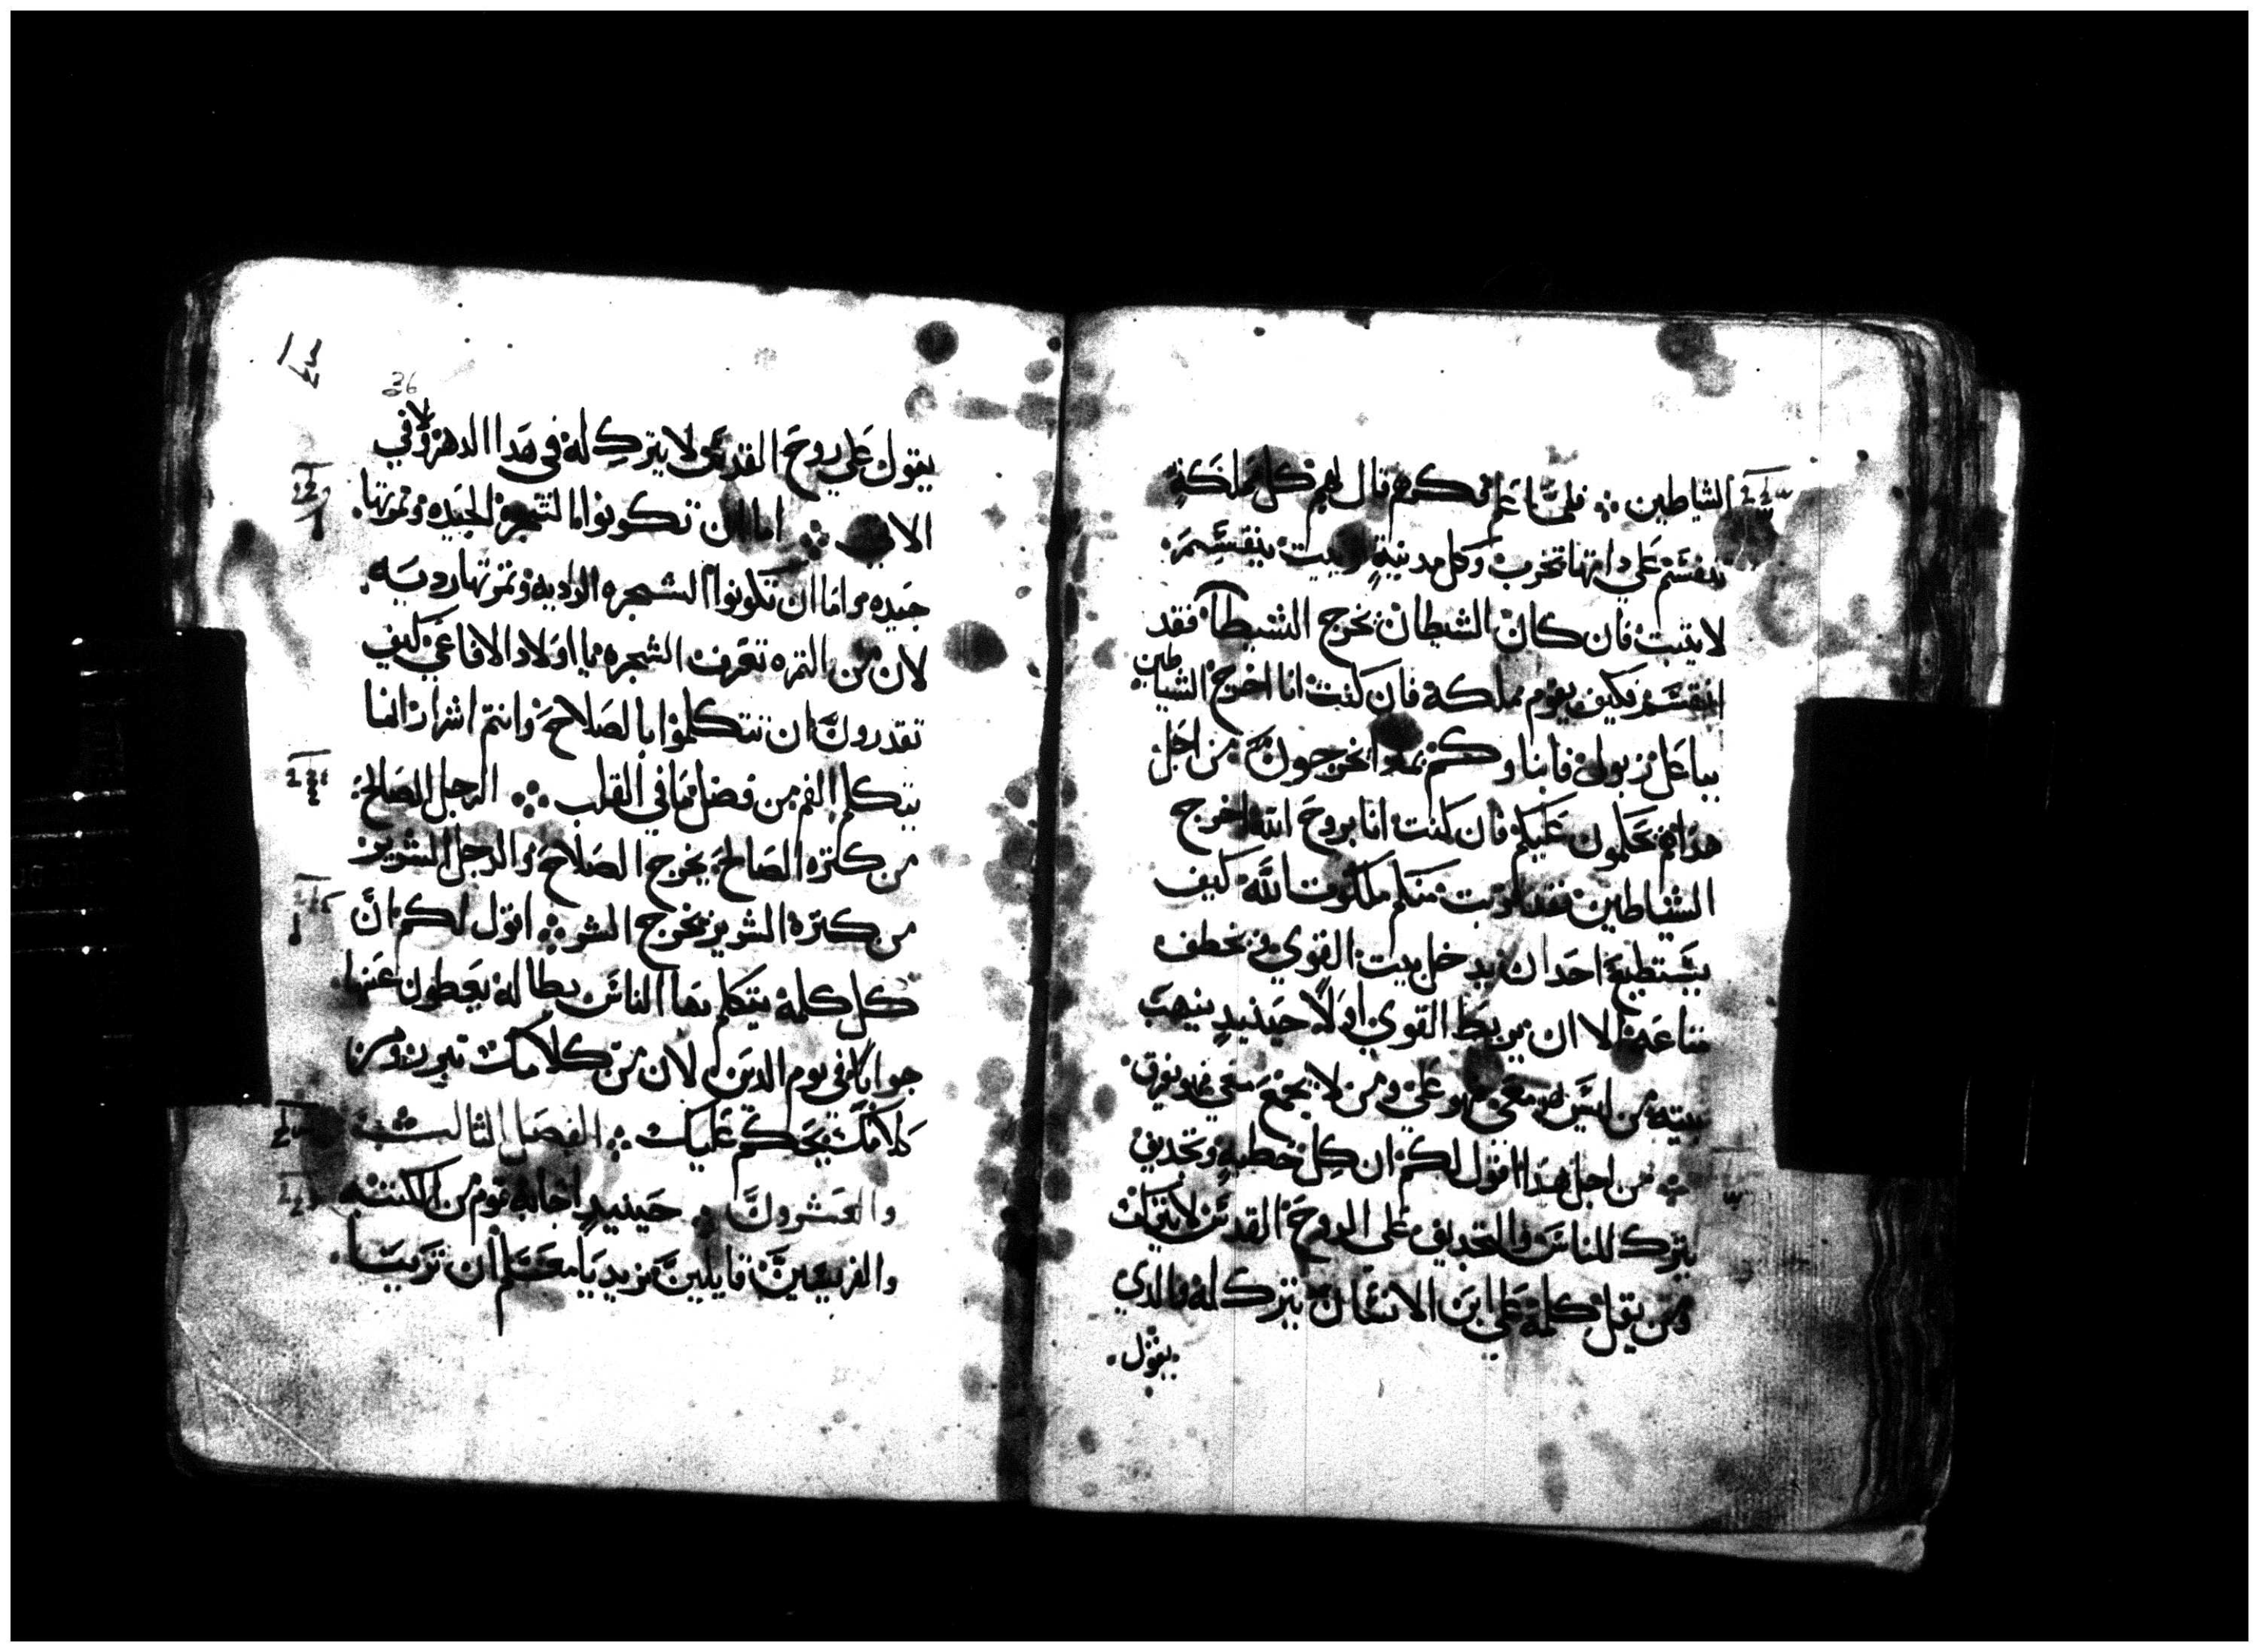 الشياطين ∴ فلما علم فكرهم قال لهم كل مملكة
تنقسم علي داتها تخرب وكل مدينة وبيت ينقسم
لا يثبت فان كان الشيطان يخرج الشيطان فقد
انقسم فكيف يقوم مملكة فان كنت انا اخرج الشياطين
بباعل زبول فابناوكم بمادا يخرجون من اجل
هدا هم يحكمون عليكم فان كنت انا بروح الله اخرج
الشياطين فقد قربت منكم ملكوت الله كيف
يستطيع احد ان يدخل بيت القوي ويخطف
متاعه الا ان يربط القوي اولا حينيد ينهب
بيته من ليس هو معي فهو علي ومن لا يجمع معي فهو يفرق
∴ من اجل هدا اقول لكم ان كل خطية وتجديف
يترك للناس والتجديف علي الروح القدس لا يترك
ومن يقل كلمة علي ابن الانسان يترك له والدي
يقول
36
يقول علي روح القدس لا يترك له في هدا الدهر ولا في
الاتي ∴ اما ان تكونوا مالشجرة الجيده وتمرتها
جيده واما ان تكونوا الشجره الرديه وتمرتها رديه
لان من التمره تعرف الشجره يا اولاد الافاعي كيف
تقدرون ان تتكلموا بالصلاح وانتم اشرار انما
يتكلم الفم من فضل ما في القلب ∴ الرجل الصالح
من كنزه الصالح يخرج الصلاح والرجل الشرير
من كنزه الشرير يخرج الشر ∴ اقول لكم ان
كل كلمة يتكلم بها الناس بطاله يعطون عنها
جوابا في يوم الدين لان من كلامك تبرر ومن
كلامك يحكم عليك ∴ الفصل الثالث
والعشرون ∴ حينيد اجابه قوم من الكتبه
والفريسيين قايلين نريد يا معلم ان ترينا